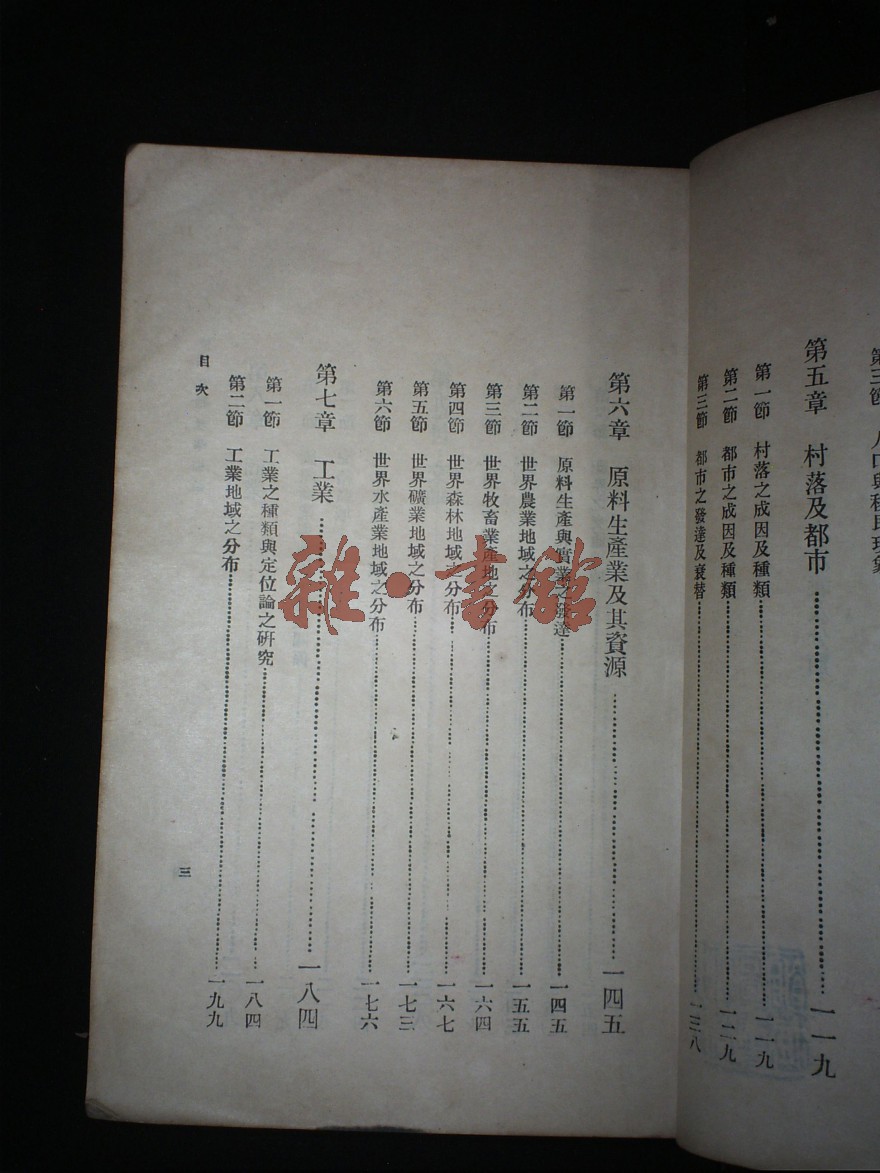 第三節 人口與移民現象
第五章 村落及都市……一一九
第一節 村落之成因及種類……一一九
第二節 都市之成因及種類……一二九
第三節 都市之發達及衰替……一三八
第六章 原料生產業及其資源……一四五
第一節 原料生產與實業之發達……一四五
第二節 世界農業地域之分布……一五五
第三節 世界牧畜業產地之分布……一六四
第四節 世界森林地域之分布……一六七
第五節 世界礦業地域之分布……一七三
第六節 世界水產業地域之分布……一七六
第七章 工業……一八四
第一節 工業之種類與定位論之研究……一八四
第二節 工業地域之分布……一九九
目次
三
雜·書館